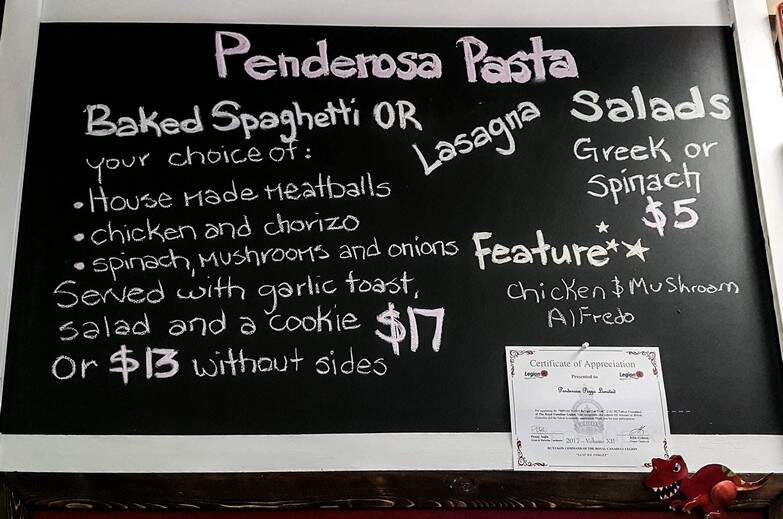 Penderosa Pasta
Baked Spaghetti OR Lasagna
your choice of:
• House Made Meatballs
• chicken and chorizo
• spinach, Mushrooms and onions
Served with garlic toast,
salad and a cookie $17
or $13 without sides
Salads
Greek or
Spinach
$5
Feature
Chicken & Mushroom
Alfredo
Certificate of Appreciation
Legion
Legion
Presented to
Penderosa Pizza Limited
2017 - Volume XII
BC/YUKON COMMAND OF THE ROYAL CANADIAN LEGION
"LEST WE FORGET"